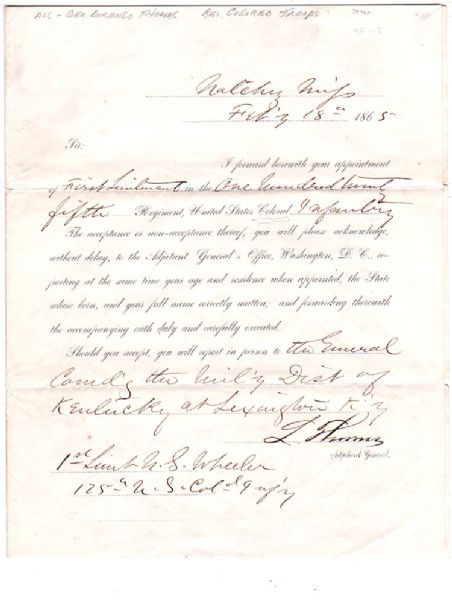 ALS - GEN LORENZO THOMAS RE: COLORED TROOPS
Natchez Miss
Feb'y 18th 1865
Sir:
I forward herewith your appointment
of First Lieutenant in the One Hundred twenty
fifth Regiment, United States Colored Infantry
The acceptance or non-acceptance thereof, you will please acknowledge,
without delay, to the Adjutant General's Office, Washington, D. C., re-
porting at the same time your age and residence when appointed, the State
where born, and your full name correctly written; and forwarding therewith
the accompanying oath duly and carefully executed.
Should you accept, you will report in person to the General
Comd'g the Mil'y Dist of
Kentucky at Lexington K'y
L Thomas
Adjutant General.
1st Lieut N. S. Wheeler
125th U. S. Col'd Inf'y